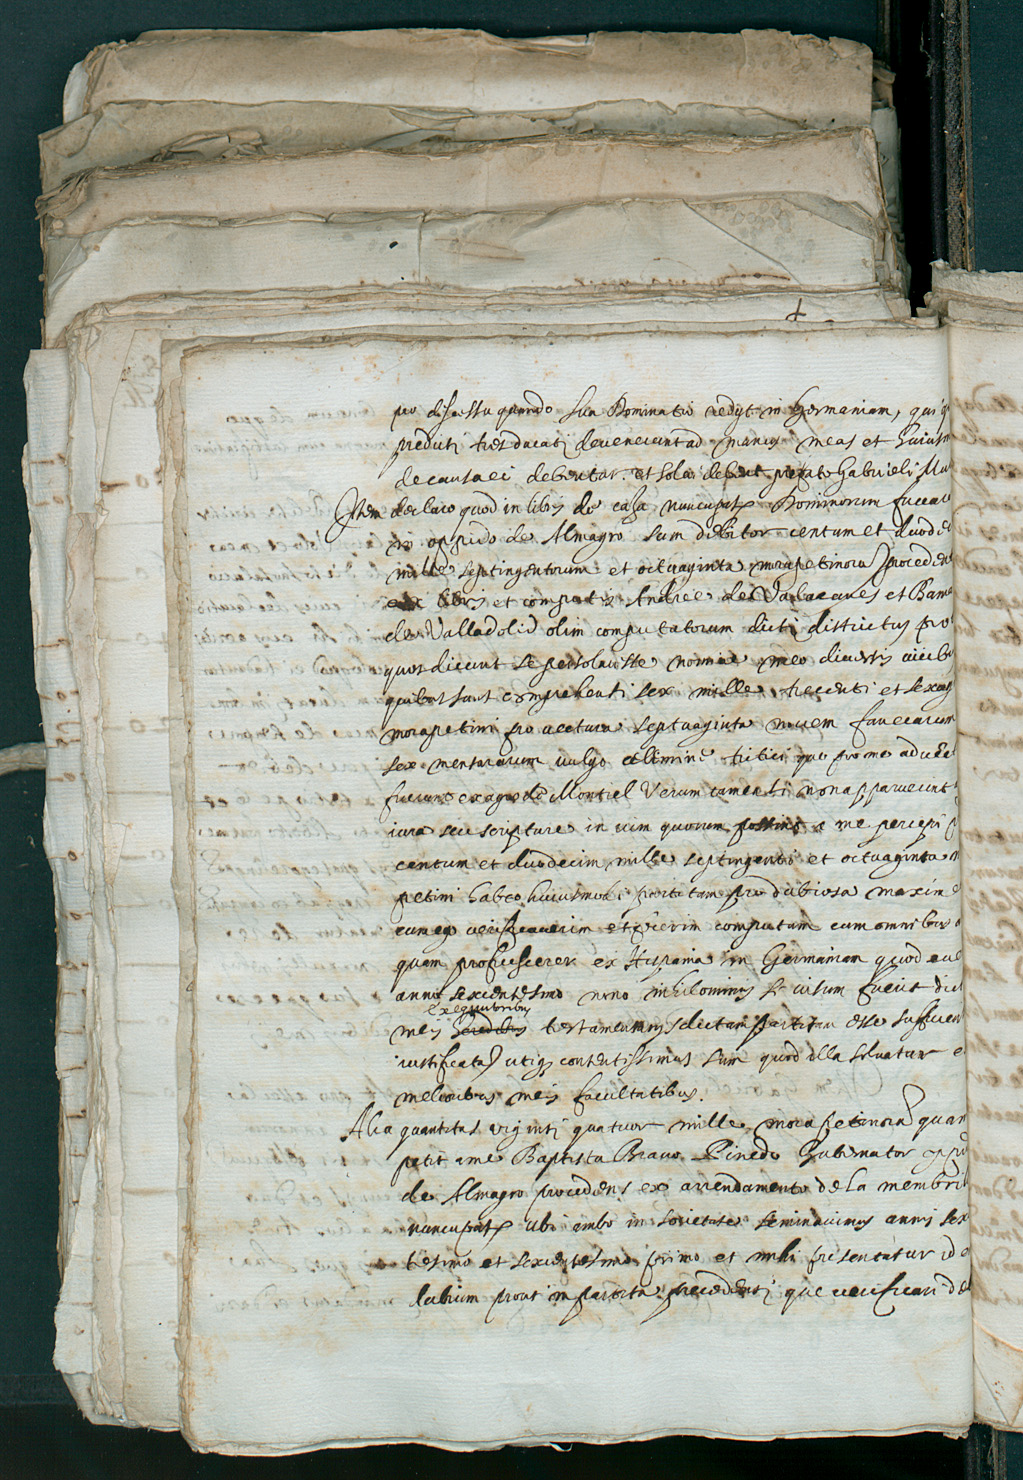 pro discessu quando sua Dominatio redyt in Germaniam, qui
predicti tres ducati devenerunt ad manus meas et huius
de causa ei debentur. et sola debent prefato Gabrieli
Item declaro quod in libris de casa nuncupat Dominorum fuccar
in oppido de Almagro sum debitor centum et duode
mille septingentorum et octuaginta morapetinoru procedent
ex libris et comput Andree de et
de Valladolid olim computatorum dicti districtus pro
quos dicunt se persolvisse nomine meo diversis vicib
quibus sunt comprehenti sex mille trecenti et sexag
morapetini pro vectura septuaginta novem fanecarum
sex mensurarum vulgo celimine tritici que pro me advect
fuerunt ex agro de Montiel Verum tamen hi non apparuerint
iura seu scripture in vim quorum possint a me percepi
centum et duodecim mille septingenti et octuaginta m
petini habeo huiusmodi partitam pro dubiosa maxime
cum ego verificaverim et fecerim computum cum omnibus
quam proficiscerer ex Hispania in Germaniam quod
anno sexcentesimo nono nihilominus si visum fuerit dict
exequutoribus
meis heredibus testamentariis dictam partitam esse sufficien
iustificata utiq contentissimus sum quod illa solvatur e
melioribus meis facultatibus.
Alia quantitas viginti quatuor mille morapetinoru quam
petit a me Baptista Bravo Pinedo Gubernator oppid
de Almagro procedens ex arrendamento de la membril
nuncupat ubi ambo in societate seminavimus annis sex
tesimo et sexcentesimo primo et mihi presentatur id
dubium prout in partita precedenti que verificari de